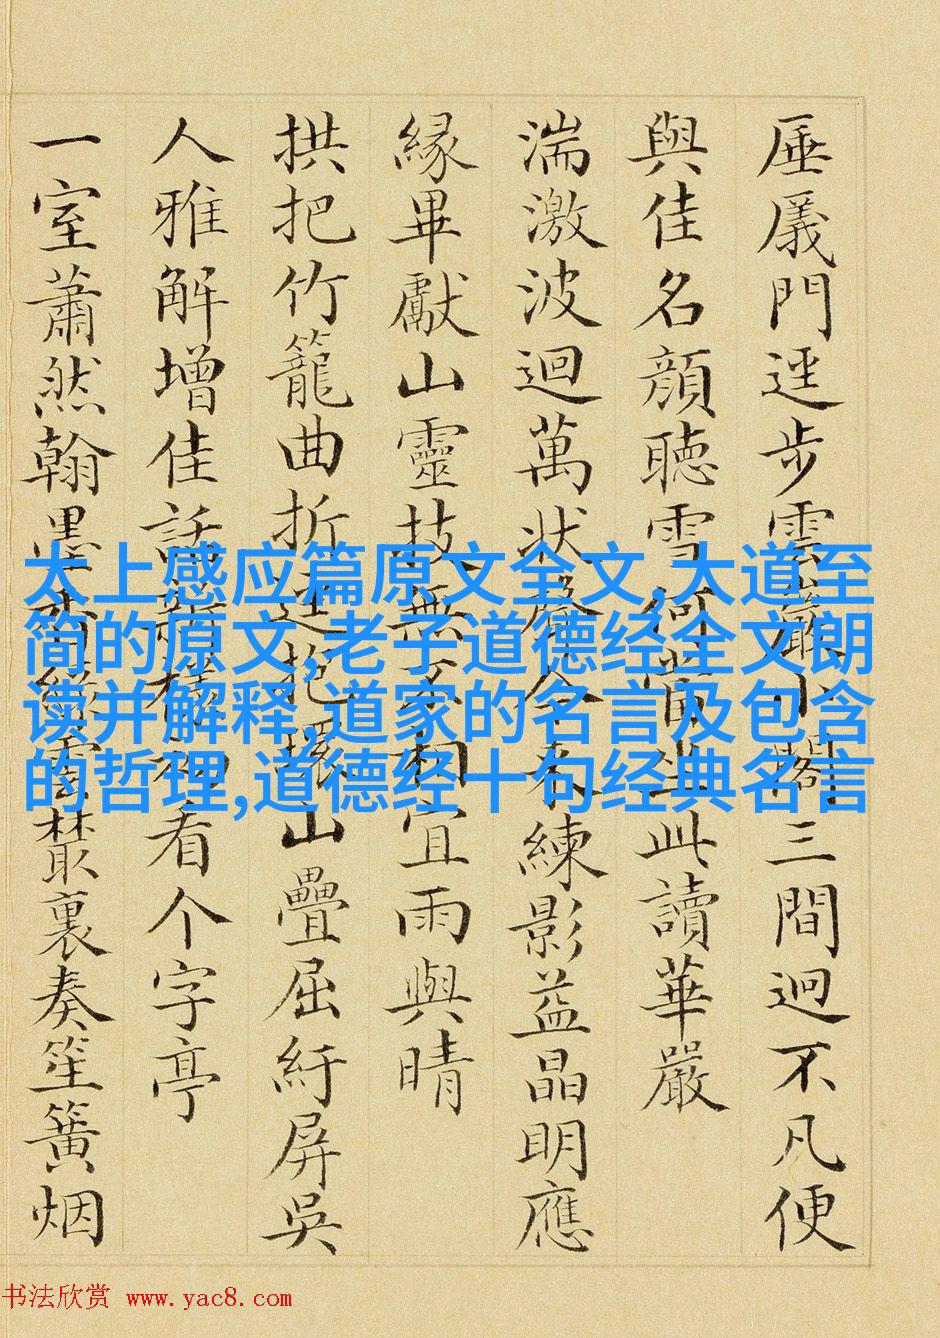 厜㕒門逕步雲巖小閣三間迥不凡便
與佳名顔聽雪何當坐此讀華嚴
湍激波迴萬狀聲今來練影益晶明應
緣畢獻山靈技無不相宜雨與晴
拱把竹籠曲折抱山疊屈紆屏吳
人雅解增佳話新構初看个字亭
一室蕭然翰墨香綠雲叢裏奏笙簧烟
太上感应篇原文全文,大道至
简的原文,老子道德经全文朗
读并解释,道家的名言及包含
的哲理,道德经十句经典名言
书法欣赏 www.yac8.com